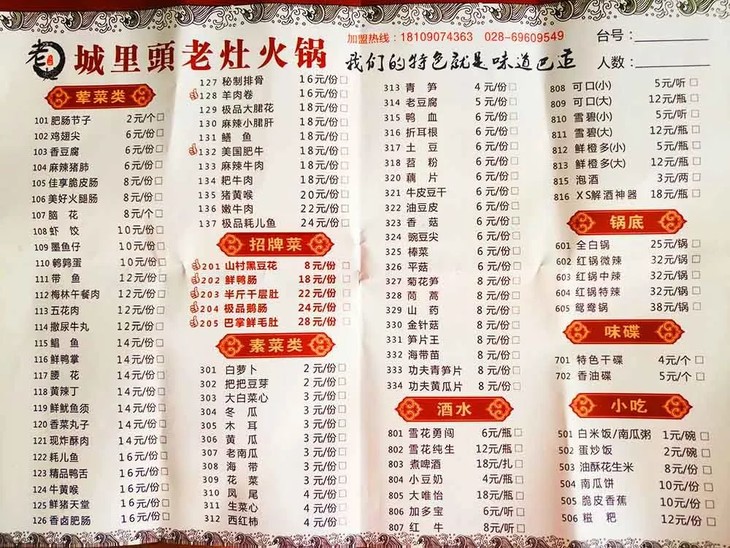 老
城里頭老灶火锅
加盟热线：18109074363 028-69609549
我们的特色就是味道巴适
台号：
人数：
荤菜类
101 肥肠节子 2元/个
102 鸡翅尖 6元/份
103 香豆腐 6元/份
104 麻辣猪肺 6元/份
105 佳享脆皮肠 8元/份
106 美好火腿肠 8元/份
107 脑花 8元/个
108 虾饺 10元/份
109 墨鱼仔 10元/份
110 鹌鹑蛋 10元/份
111 带鱼 12元/份
112 梅林午餐肉 12元/份
113 五花肉 12元/份
114 撒尿牛丸 12元/份
115 鲳鱼 14元/份
116 鲜鸭掌 14元/份
117 腰花 14元/份
118 黄辣丁 14元/份
119 鲜鱿鱼须 14元/份
120 香菜丸子 14元/份
121 现炸酥肉 14元/份
122 耗儿鱼 16元/份
123 精品鸭舌 16元/份
124 牛黄喉 16元/份
125 鲜猪天堂 16元/份
126 香卤肥肠 16元/份
127 秘制排骨 16元/份
128 羊肉卷 16元/份
129 极品大腰花 18元/份
130 麻辣小郡肝 18元/份
131 鳝鱼 18元/份
132 美国肥牛 18元/份
133 麻辣牛肉 18元/份
134 耙牛肉 18元/份
135 猪黄喉 20元/份
136 嫩牛肉 22元/份
137 极品耗儿鱼 24元/份
招牌菜
201 山村黑豆花 8元/份
202 鲜鸭肠 18元/份
203 半斤千层肚 22元/份
204 极品鹅肠 24元/份
205 巴掌鲜毛肚 28元/份
素菜类
301 白萝卜 2元/份
302 把把豆芽 2元/份
303 大白菜心 3元/份
304 冬瓜 3元/份
305 木耳 3元/份
306 黄瓜 3元/份
307 老南瓜 3元/份
308 海带 3元/份
309 花菜 3元/份
310 凤尾 4元/份
311 生菜心 4元/份
312 西红柿 4元/份
313 青笋 4元/份
314 老豆腐 5元/份
315 鸭血 5元/份
316 折耳根 5元/份
317 土豆 5元/份
318 苕粉 5元/份
320 藕片 5元/份
321 牛皮豆干 5元/份
322 油豆皮 6元/份
323 香菇 6元/份
324 豌豆尖 6元/份
325 棒菜 6元/份
326 平菇 6元/份
327 菊花笋 8元/份
328 茼蒿 8元/份
329 山药 8元/份
330 金针菇 8元/份
331 笋片王 8元/份
332 海带苗 8元/份
333 功夫青笋片 8元/份
334 功夫黄瓜片 8元/份
酒水
801 雪花勇闯 6元/瓶
802 雪花纯生 12元/瓶
803 煮啤酒 18元/扎
804 小豆奶 4元/瓶
805 大唯怡 18元/瓶
806 加多宝 6元/听
807 红牛 8元/听
808 可口(小) 5元/听
809 可口(大) 12元/瓶
810 雪碧(小) 5元/听
811 雪碧(大) 12元/瓶
812 鲜橙多(小) 5元/瓶
813 鲜橙多(大) 12元/瓶
815 泡酒 3元/两
816 XS解酒神器 18元/瓶
锅底
601 全白锅 25元/锅
602 红锅微辣 32元/锅
603 红锅中辣 32元/锅
604 红锅特辣 32元/锅
605 鸳鸯锅 38元/锅
味碟
701 特色干碟 4元/个
702 香油碟 4元/个
小吃
501 白米饭/南瓜粥 1元/碗
502 蛋炒饭 2元/碗
503 油酥花生米 8元/份
504 南瓜饼 10元/份
505 脆皮香蕉 10元/份
506 糍粑 12元/份